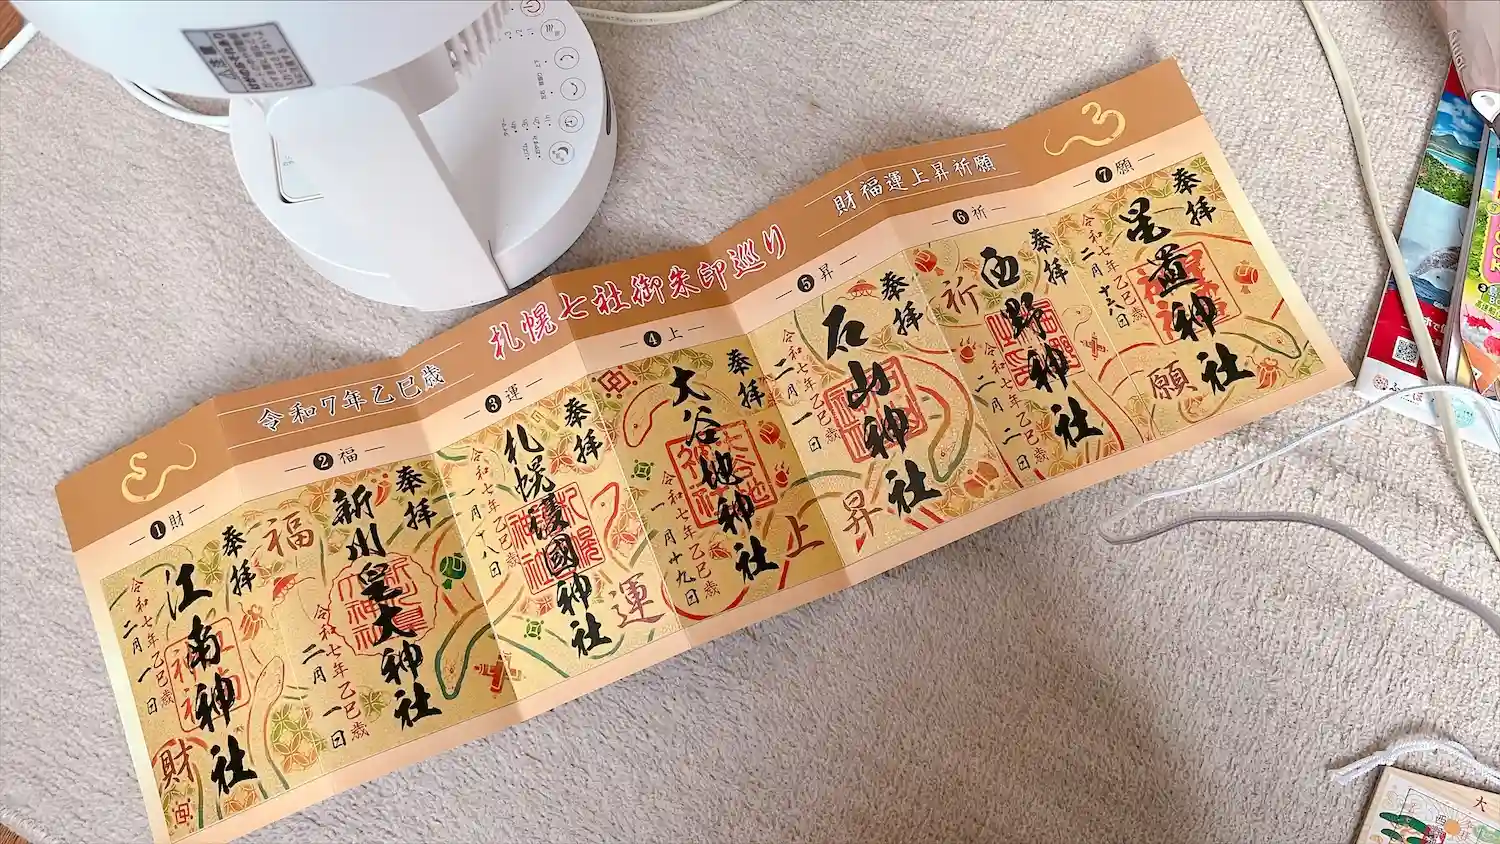 令和7年乙巳歳
札幌七社御朱印巡り
財福運上昇祈願
❶財
奉拝
江南神社
令和七年乙巳歳
二月一日
財
❷福
福
奉拝
新川皇大神社
令和七年乙巳歳
二月一日
❸運
奉拝
札幌護國神社
令和七年乙巳歳
一月十八日
運
❹上
奉拝
大谷地神社
令和七年乙巳歳
一月十九日
上
❺昇
奉拝
石山神社
令和七年乙巳歳
二月一日
昇
❻祈
奉拝
西野神社
祈
令和七年乙巳歳
二月二日
❼願
奉拝
星置神社
令和七年乙巳歳
願